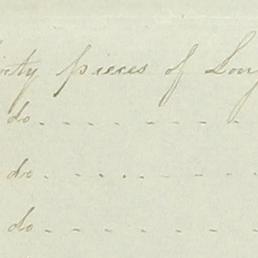 pieces of Long
do
do
do